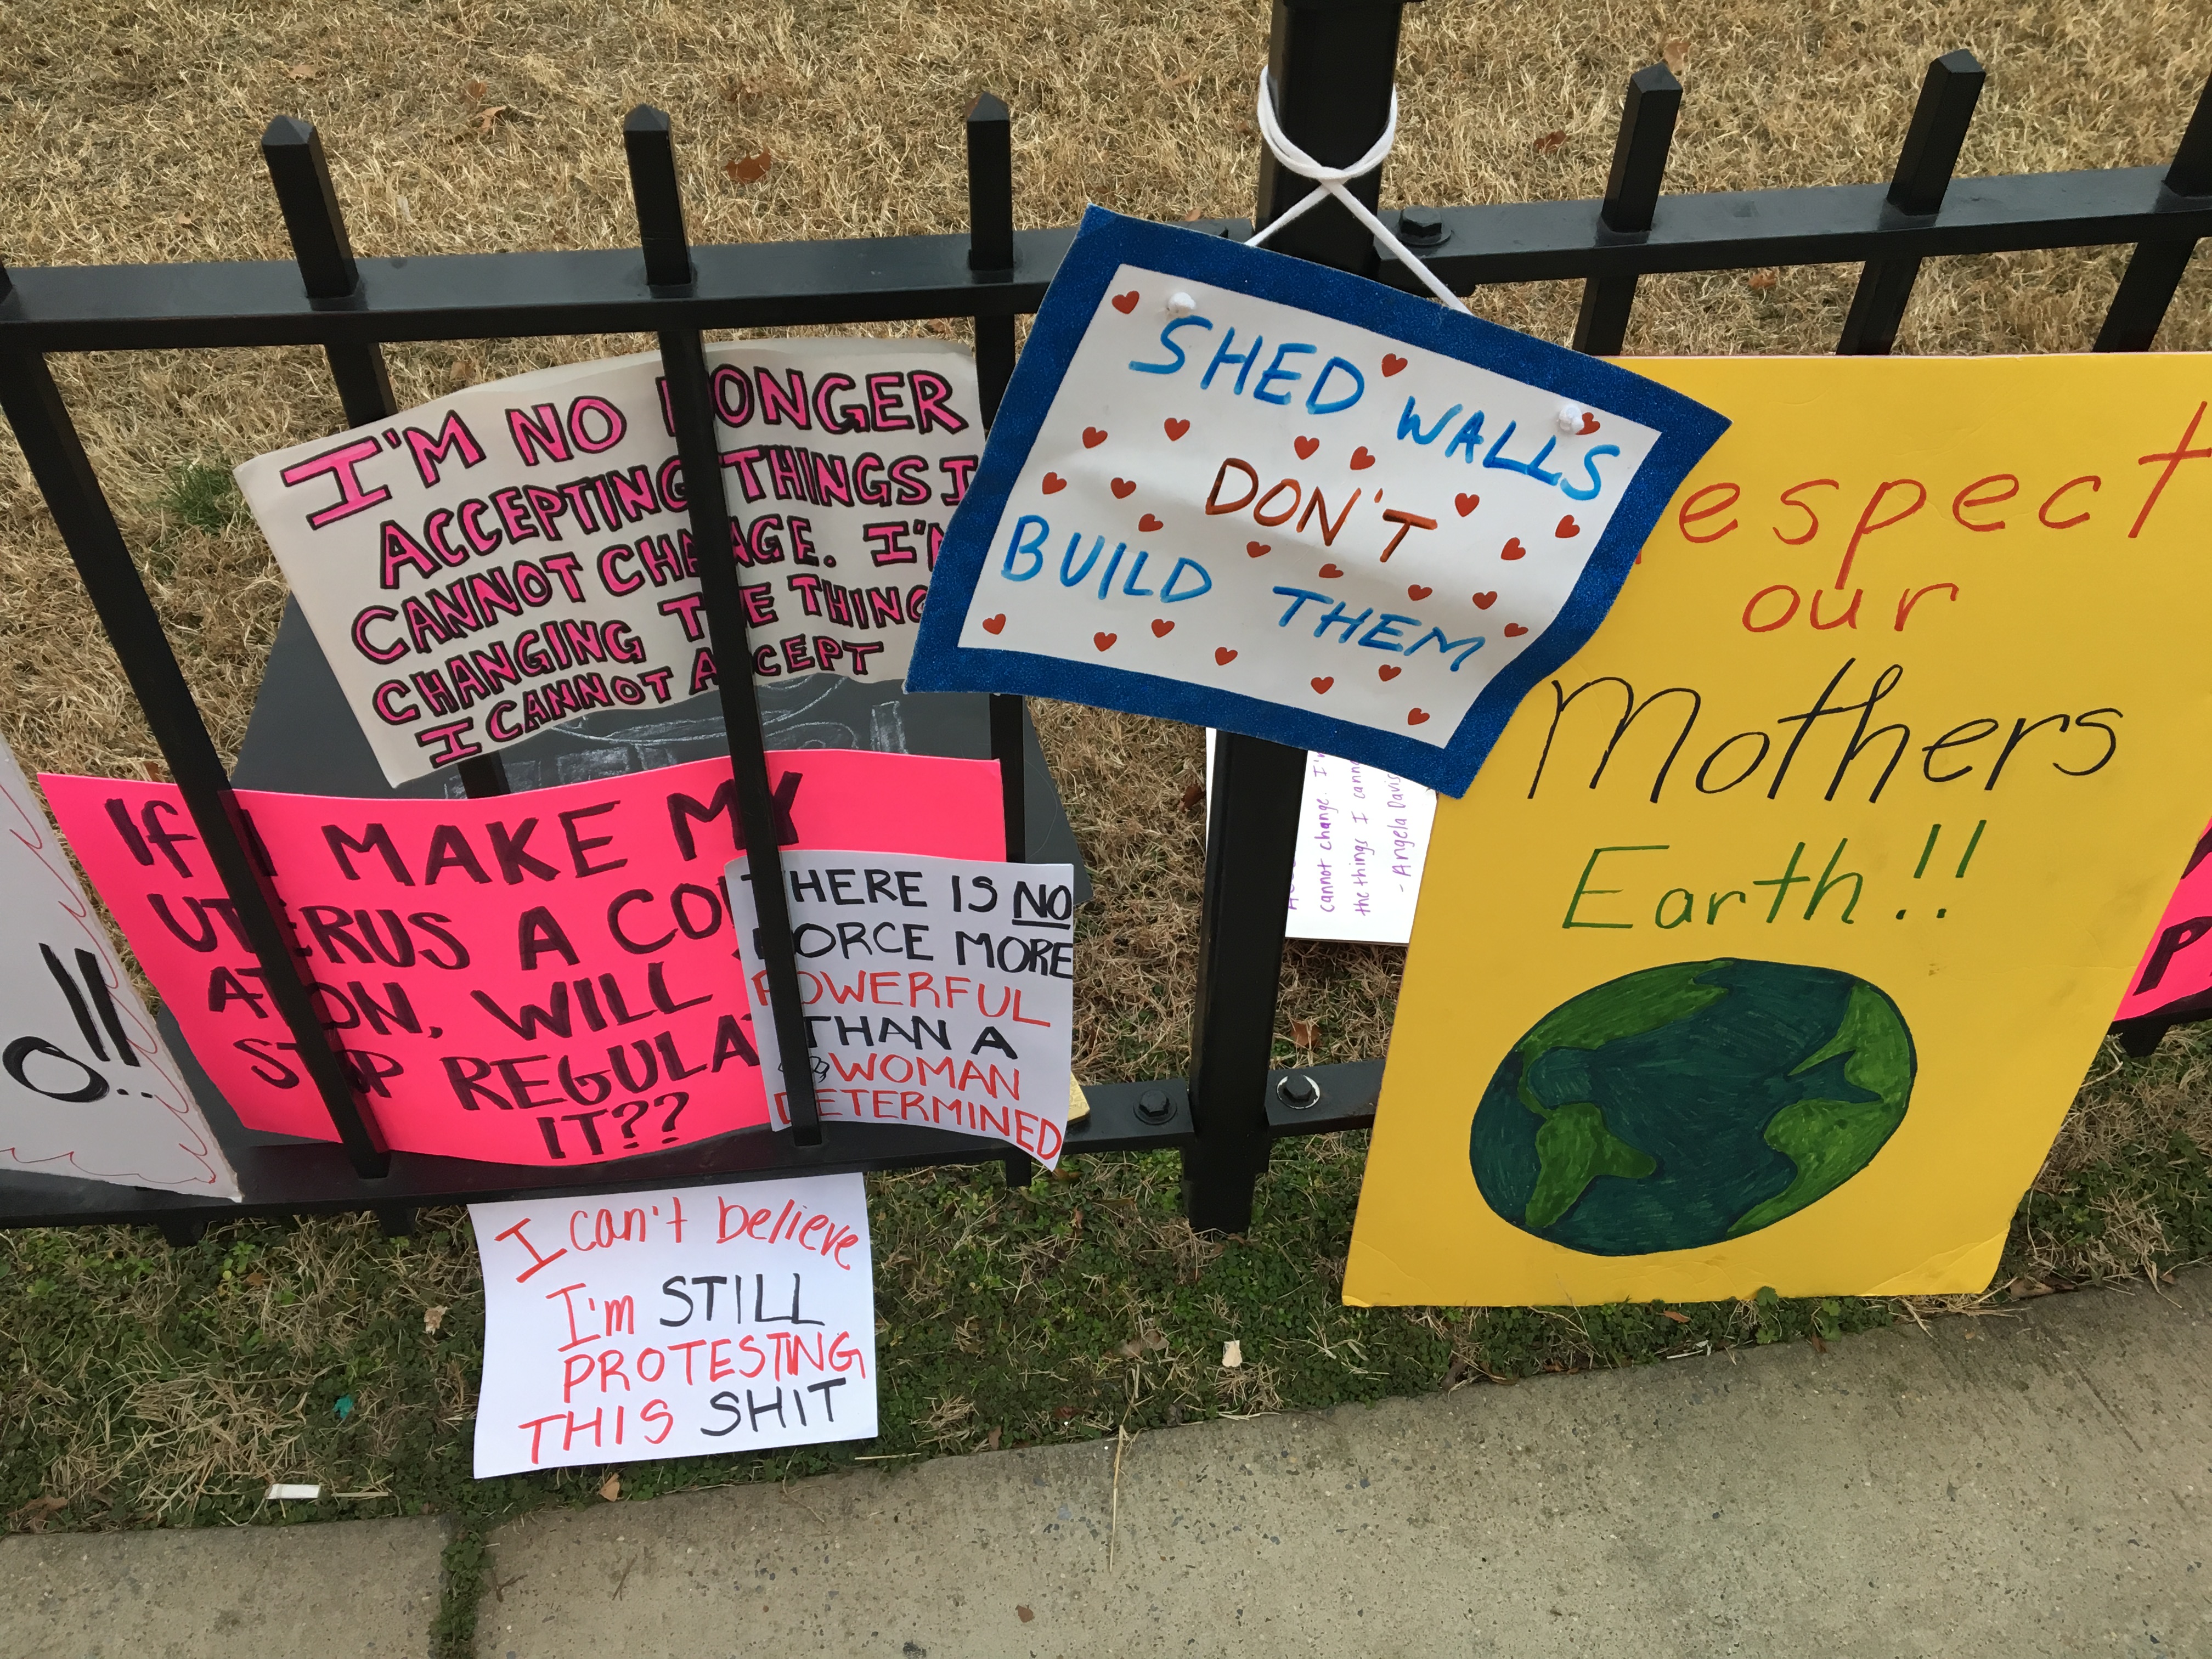 I'M NO LONGER
ACCEPTING THINGS I
CANNOT CHANGE. I'M
CHANGING THE THING
I CANNOT ACCEPT
SHED WALLS
DON'T
BUILD THEM
espect
our
Mothers
Earth!!
cannot change. I'm
the things I canno
- Angela Davis
IF I MAKE MY
UTERUS A CO
ATION, WILL
STOP REGULAT
IT??
THERE IS NO
FORCE MORE
POWERFUL
THAN A
WOMAN
DETERMINED
I can't believe
I'm STILL
PROTESTING
THIS SHIT
o!!
P